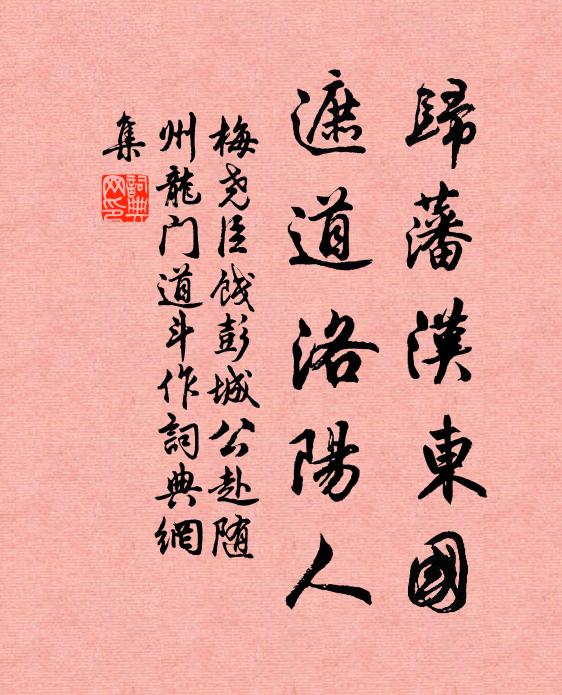 歸藩漢東國
遮道洛陽人
梅尧臣餞彭城公赴随
州龍门道斗作詞典網
集
詞典网印